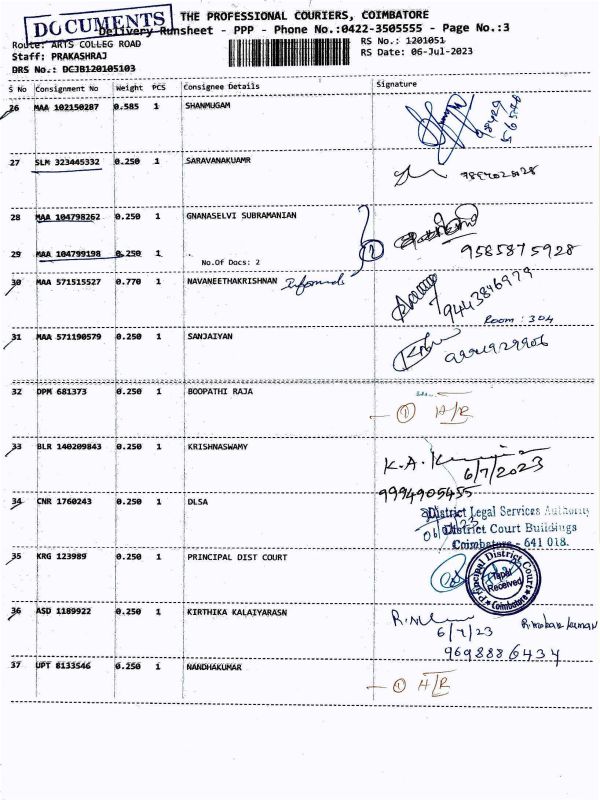 DOCUMENTS
THE PROFESSIONAL COURIERS, COIMBATORE
Delivery Runsheet - PPP - Phone No.:0422-3505555 - Page No.:3
Route: ARTS COLLEG ROAD
RS No.: 1201051
Staff: PRAKASHRAJ
RS Date: 06-Jul-2023
DRS No.: DCJB120105103
S No Consignment No Weight PCS Consignee Details Signature
26 MAA 102150287 0.585 1 SHANMUGAM
27 SLM 323445332 0.250 1 SARAVANAKUAMR
28 MAA 104798262 0.250 1 GNANASELVI SUBRAMANIAN
2
29 MAA 104799198 0.250 1
No.Of Docs: 2
9585875928
30 MAA 571515527 0.770 1 NAVANEETHAKRISHNAN
9443846979
Room: 304
31 MAA 571190579 0.250 1 SANJAIYAN
32 DPM 681373 0.250 1 BOOPATHI RAJA
1
33 BLR 140209843 0.250 1 KRISHNASWAMY
K.A.
6/7/2023
9994905455
34 CNR 1760243 0.250 1 DLSA
District Legal Services Authority
District Court Buildings
Coimbatore - 641 018.
35 KRG 123989 0.250 1 PRINCIPAL DIST COURT
Principal District Court
Tapal
Received
Coimbatore
36 ASD 1189922 0.250 1 KIRTHIKA KALAIYARASN
6/7/23
9698886434
37 UPT 8133546 0.250 1 NANDHAKUMAR
1